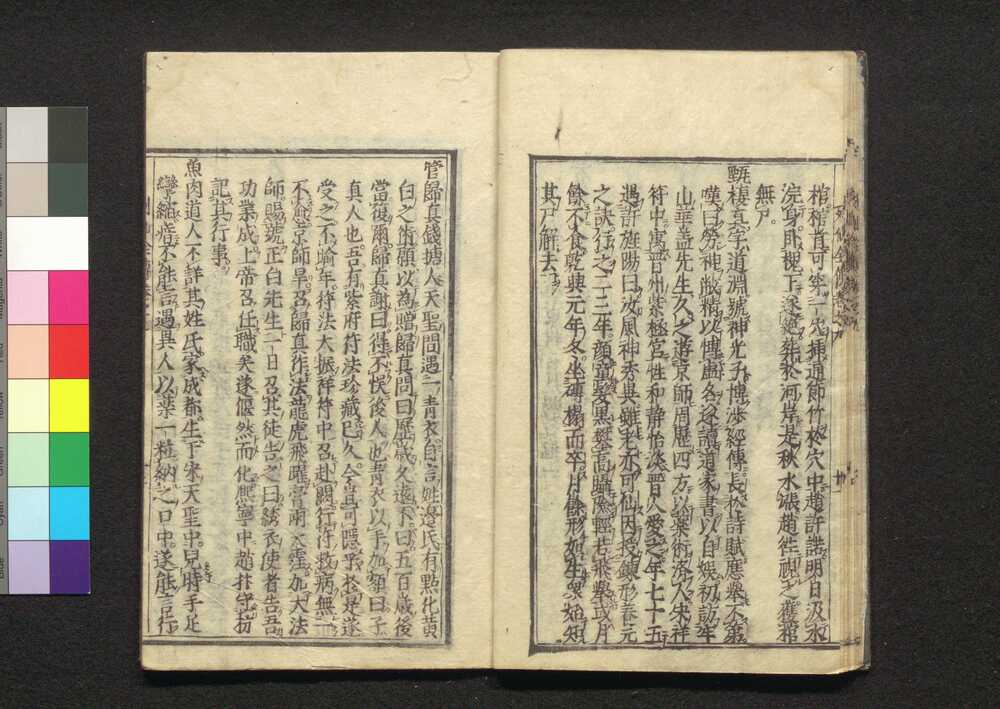 棺槨直可穿一穴揷通節竹於穴中趙許諾明日汲水
浣身臥槐下遂絶葬於河岸是秋水漲趙徃視之獲棺
無尸
甄棲真字道淵號神光子博渉經傳長於詩賦應舉不第
嘆曰勞神敝精以愽虛名遂讀道家書以自娯初訪牢
山華蓋先生久之遊京師周歷四方以藥術濟人宋祥
符中寓晉州紫極宮性和静怡淡晉人愛之年七十五
遇許旌陽曰汝風神秀異雖老亦可仙因授錬形養元
之訣行之二三年顔童髮黒攀高躡危輕若飛舉歳月
餘不食乾興元年冬坐磚榻而卒月餘形如生衆始知
其尸解去
管歸真錢搪人天聖間遇一青衣自言姓邊氏有點化黄
白之術願以為贈歸真問曰歴歳久遠不曰五百歳後
當復爾歸真謝曰得不悞後人也青衣以手加額曰子
真人也吾有紫府符法珍藏已久今豈可隱乎於是遂
受之不喻年符法大振祥符中召赴闕行符救病無
不應京師旱召歸真作法龍虎飛躍雷雨大霆加大法
師賜號正白先生一日召其徒告之曰綉衣使者告吾
功業成上帝召任職矣遂偃然而化熈寧中趙抃守杭
記其行事
魚肉道人不詳其姓氏家成都生于宋天聖中兒時手足
攣縮瘖不能言遇異人以藥一粒納之口中遂能言行